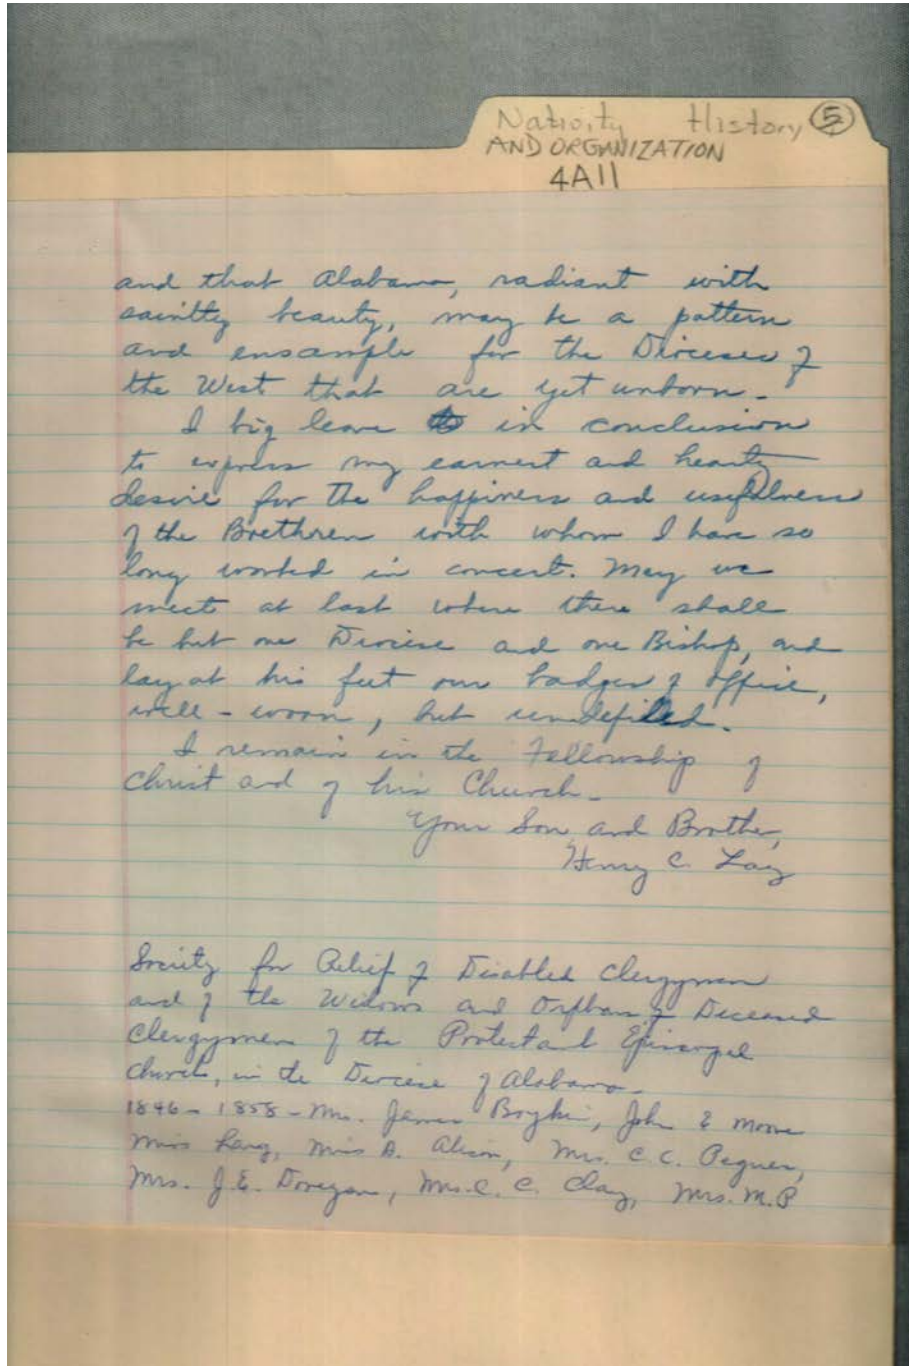 Nativity History 5
AND ORGANIZATION
4A11
and that Alabama, radiant with
saintly beauty, may be a pattern
and ensample for the Dioceses of
the West that are yet unborn.
I beg leave in conclusion
to express my earnest and hearty
desire for the happiness and usefulness
of the Brethren with whom I have so
long worked in concert. May we
meet at last where there shall
be but one Diocese and one Bishop, and
lay at his feet our badges of office,
well-worn, but undefiled.
I remain in the Fellowship of
Christ and of his Church.
Your Son and Brother,
Henry C. Lay
Society for Relief of Disabled Clergymen
and of the Widows and Orphans of Deceased
Clergymen of the Protestant Episcopal
Church, in the Diocese of Alabama.
1846-1858 - James Boykin, John E Moore
Miss Lang, Miss A. Mrs. C. C. Pegues,
Mrs. J. E. Donegan, Mrs. C. C. Clay, Mrs. M. P